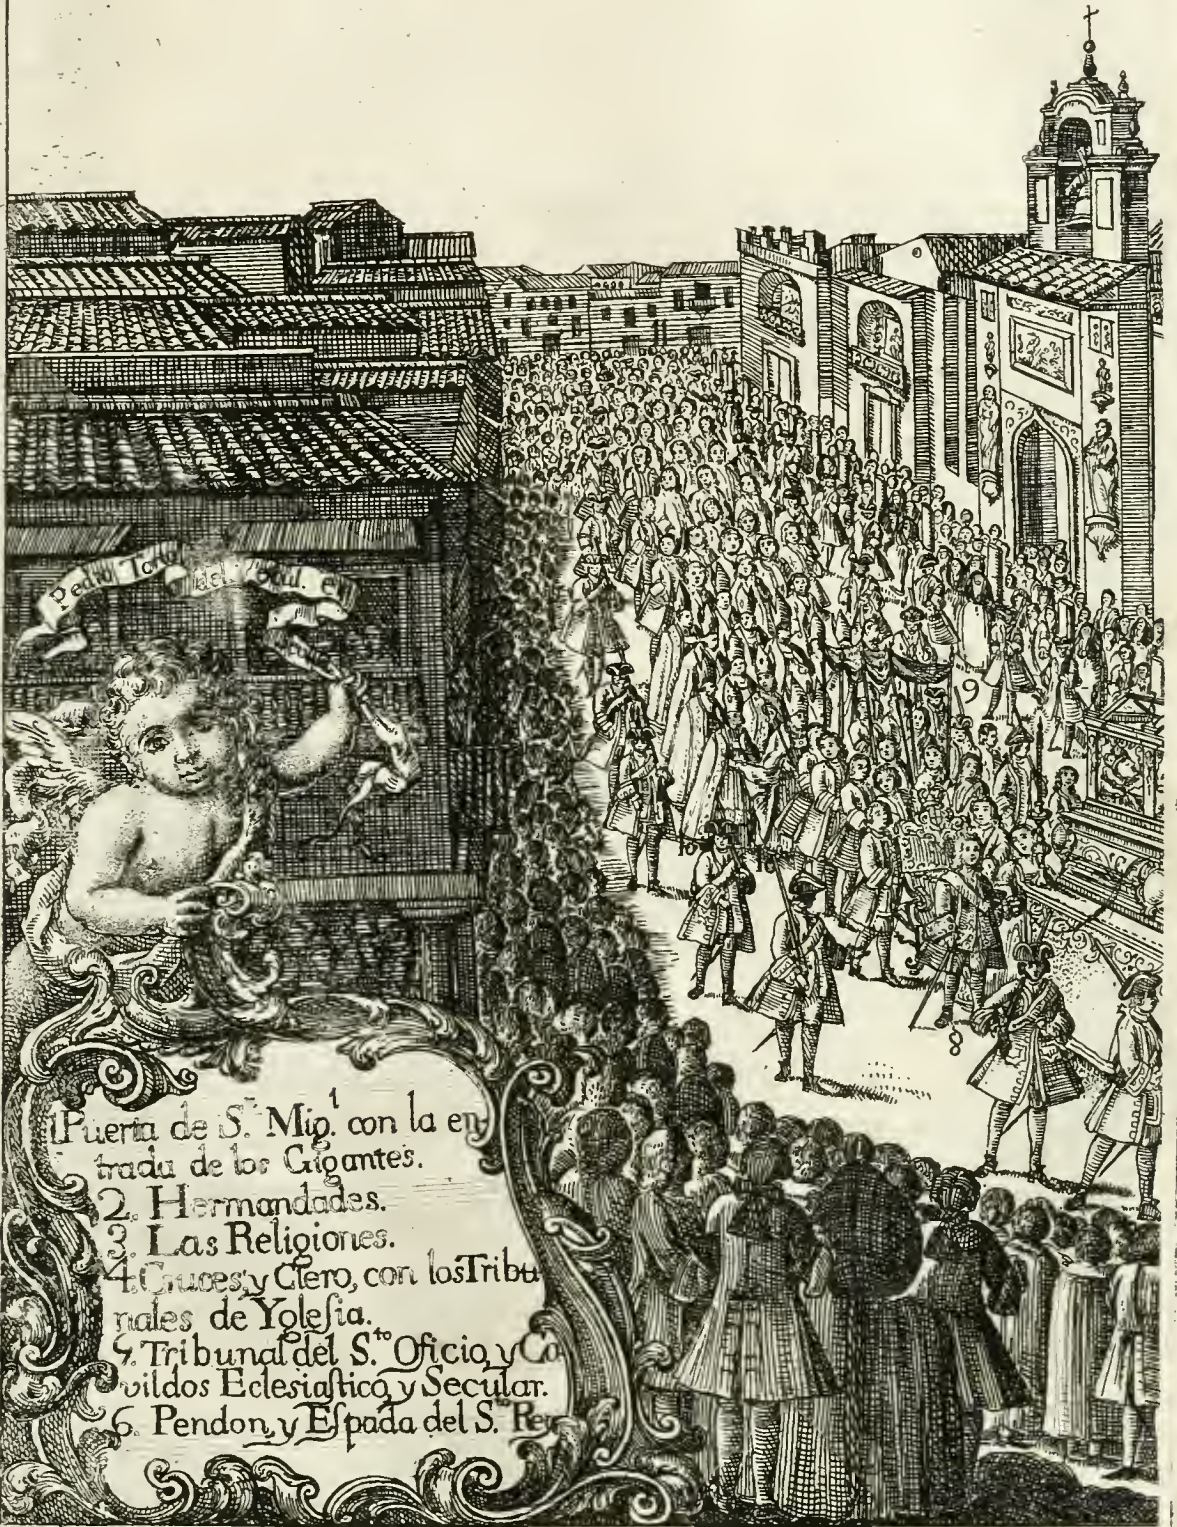 Pedro Tor
del
1. Puerta de S.ⁿ Mig.ˡ con la en
trada de los Gigantes.
2. Hermandades.
3. Las Religiones.
4. Cruces, y Clero, con los Tribu
nales de Ygleſia.
5. Tribunal del S.ᵗᵒ Oficio, y Ca
vildos Ecleſiaſtico, y Secular.
6. Pendon, y Eſpada del S.ᵗᵒ Rey
9
10
10
8